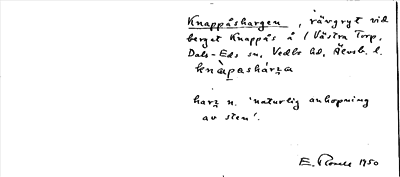 Knappåshargen, rävgryt vid
berget Knappås å (Västra Torp,
Dals-Eds sn, Vedbo hd, Älvsb. l.
knàpashárza
harz n. 'naturlig anhopning
av sten'.
E. 1950